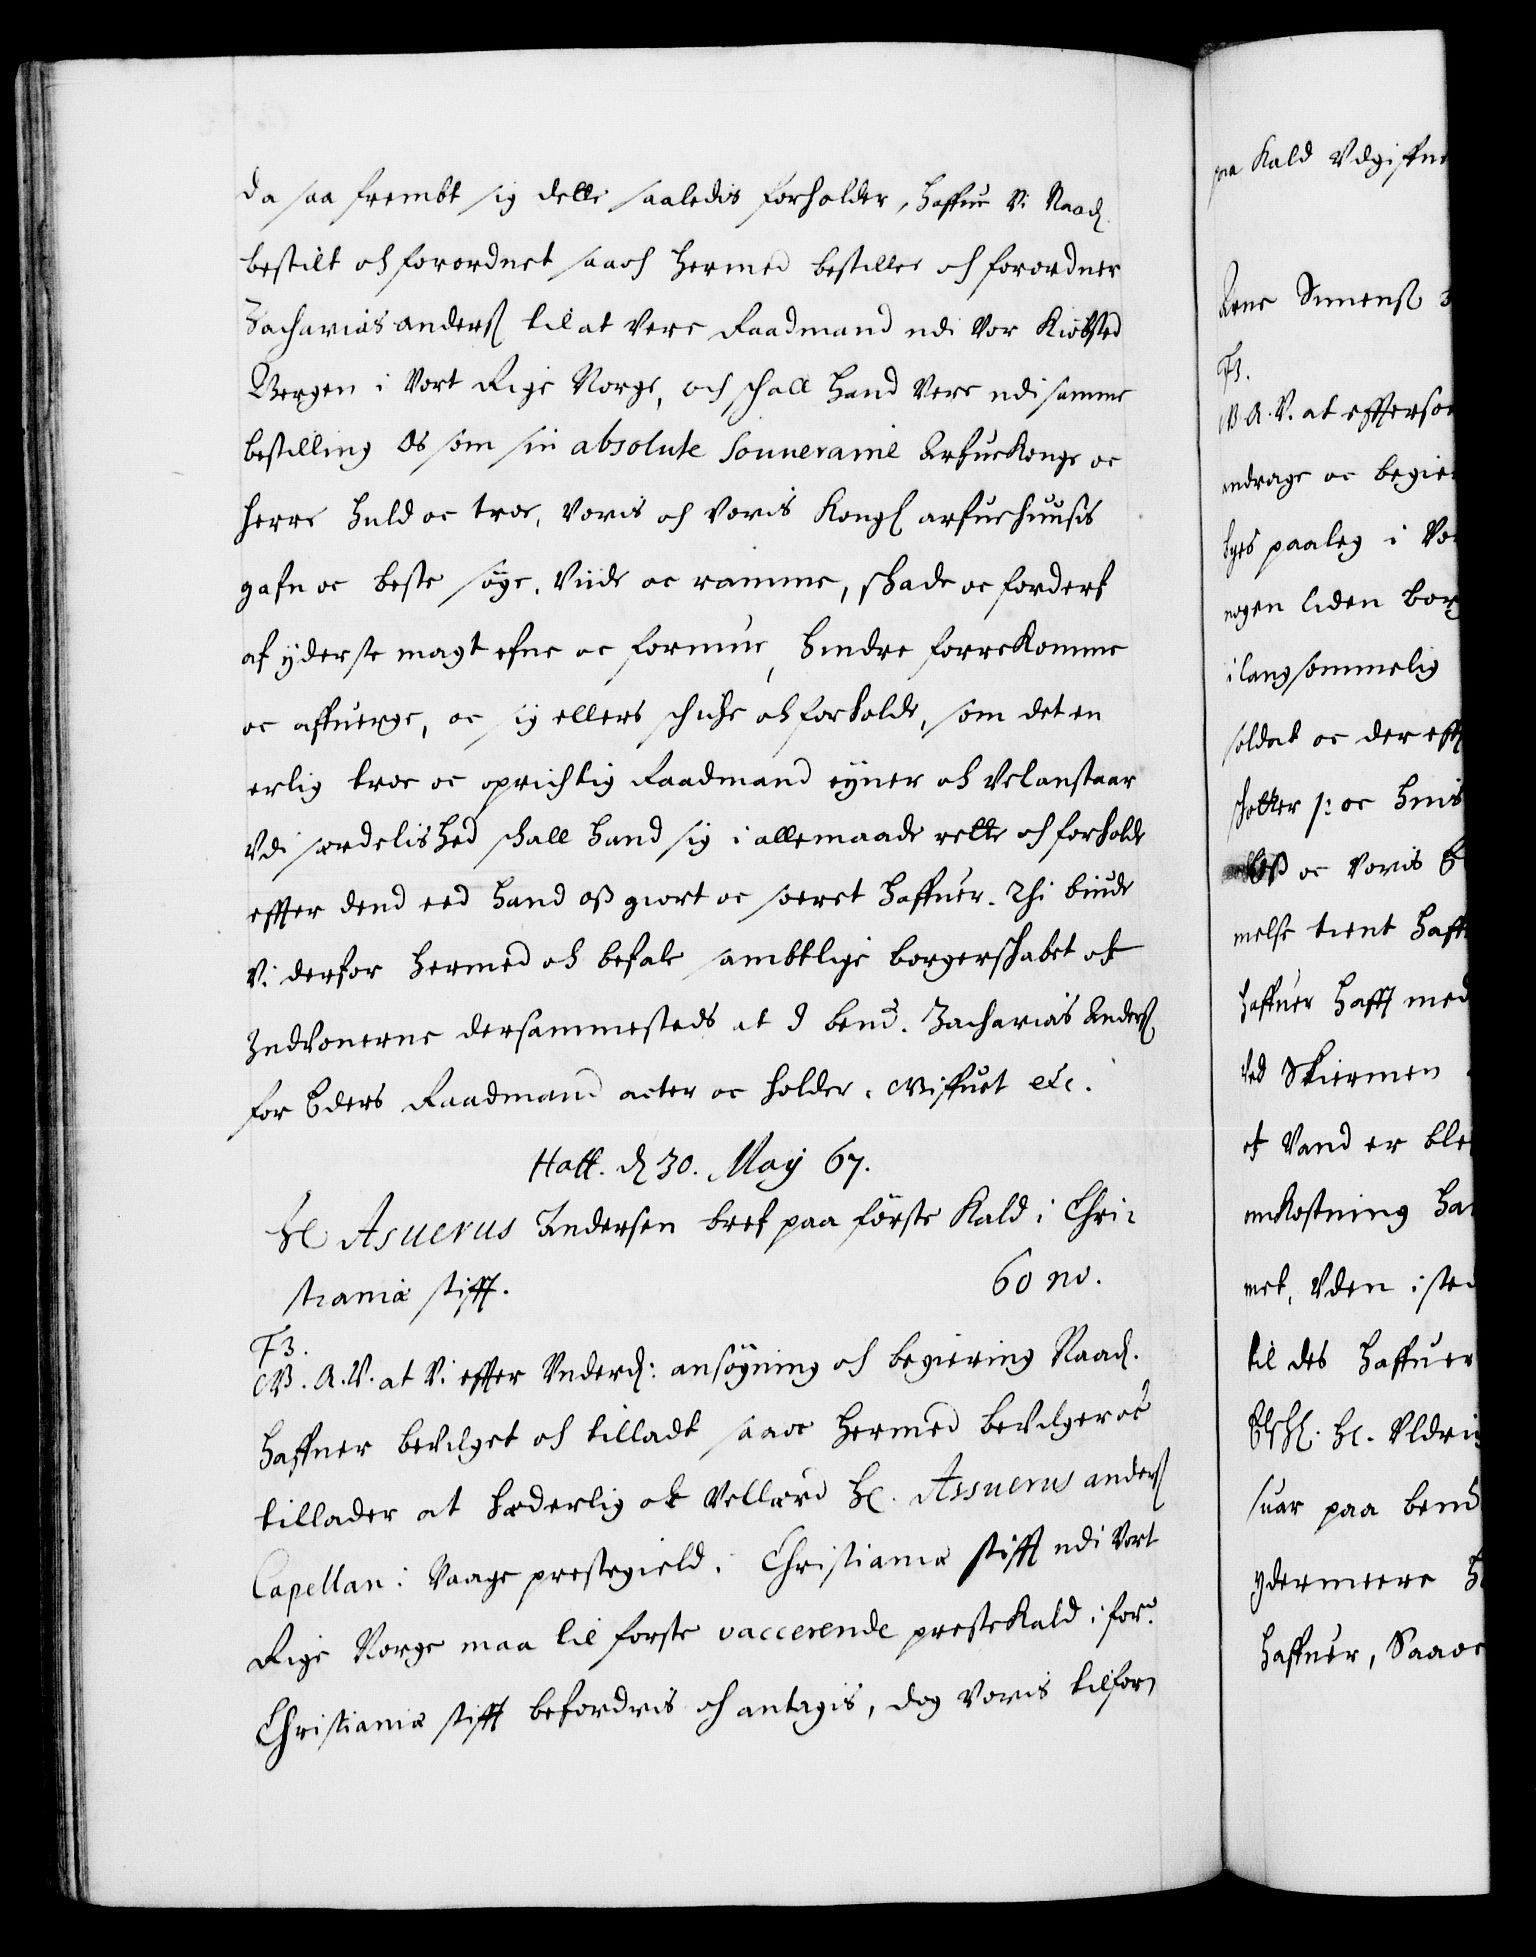 da saa frembt sig dette saaledis forholder, haffue Vi Naad.
bestilt och forordnet saaoch hermed bestiller och forordner
Zacharias anders. til at Vere Raadmand udi Vor Kiøbsted
Bergen i Vort Rige Norge, och schall hand Vere udi samme
bestilling Os som sin absolute Souveraine ArfueKonge oc
herre huld oc troe, Voris och Voris Kongl. arfuehuusis
gafn oc beste søge, Viide oc ramme, skade oc forderf
af yderste magt efne oc formue, hindre forrekomme
oc affuerge, oc sig ellers schiche och forholde, som det en
erlig troe oc oprichtig Raadmand eyner och Velanstaar
Udi serdelished schall hand sig i allemaade rette och forholde
effter dend eed hand oß giort oc soeret haffuer. Thi biude
Vi derfor hermed och befale sambtlige borgerskabet och
Indvonerne dersammesteds at de bemd. Zacharias Anders.
for Eders Raadmand acter oc holder. Giffuet etc.
Haff. d. 30. Maij 67.
Hr. Asuerus Andersen bref paa første Kald i Chri-
stianiæ stifft. 60 no.
F3.
G. A. V. at Vi effter Underd: ansøgning och begiering Naad.
haffuer beVilget och tilladt saa oc hermed beVilger oc
tillader at hæderlig och Vellærd Hr. Assuerus anders.
Capellan i Vaage prestegield i Christianiæ stifft udi Vort
Rige Norge maa til første vaccerende prestekald i ford.
Christianiæ stifft befordris och antagis, dog Voris tilforn
paa Kald Udgiffne
F3.
G. A. V. at effterso
andrage oc begie
paaleg i Vo
nogen liden bor
i langsommelig
soldat oc der eff
skatter p: oc huis
Oß oc Voris
melse tient haff
haffuer hafft med
Ved
af Vand er ble
omkostning ha
met, Uden i sted
til des haffuer
Elsk. Hr. Uldri
suar paa bemd
ydermeere
haffuer, Saa oc